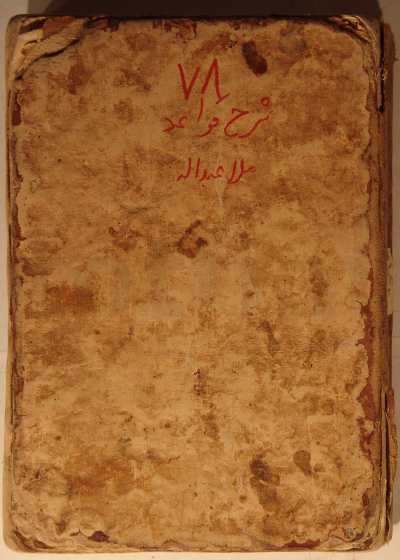 ٧٨
شرح قواعد
ملا عبداله